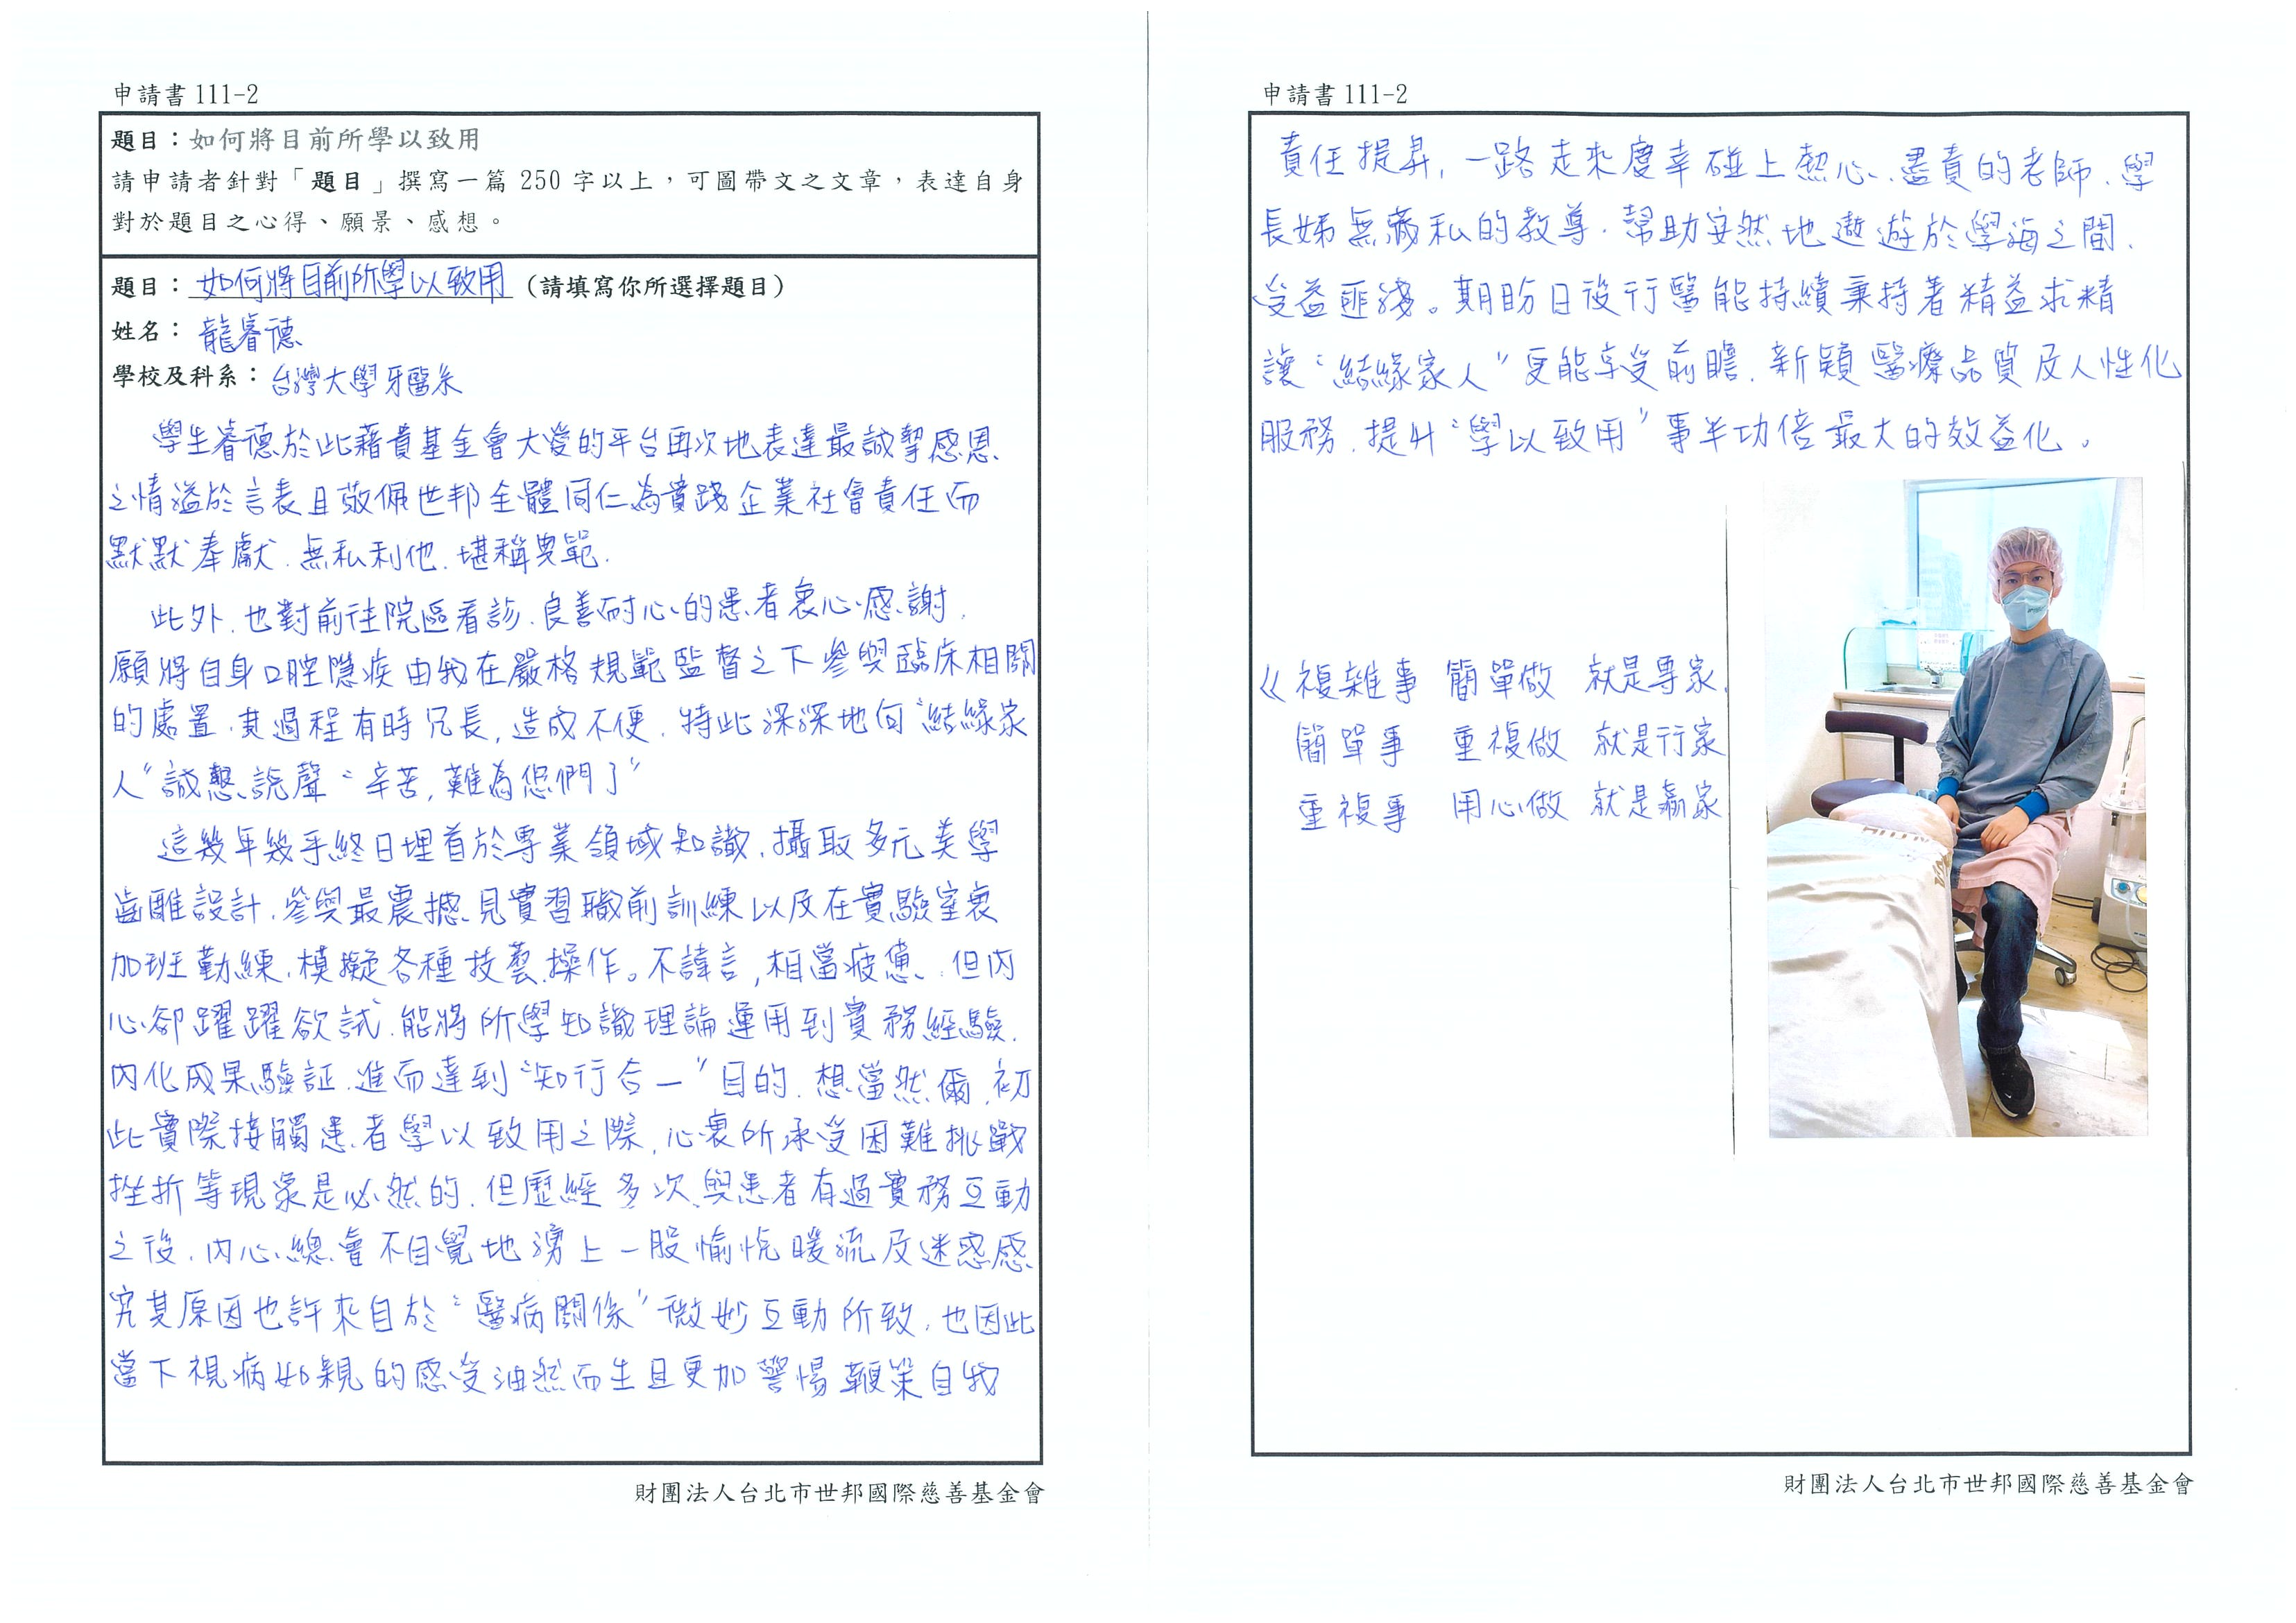 申請書 111-2
題目：如何將目前所學以致用
請申請者針對「題目」撰寫一篇 250 字以上，可圖帶文之文章，表達自身
對於題目之心得、願景、感想。
題目：如何將目前所學以致用（請填寫你所選擇題目）
姓名：龍睿德
學校及科系：台灣大學牙醫系
學生睿德於此藉貴基金會大愛的平台再次地表達最誠摯感恩
之情溢於言表且敬佩世邦全體同仁為實踐企業社會責任而
默默奉獻、無私利他、堪稱典範.
此外、也對前往院區看診、良善耐心的患者衷心感謝、
願將自身口腔隱疾由我在嚴格規範監督之下參與臨床相關
的處置、其過程有時冗長,造成不便、特此深深地向“結緣家
人”誠懇說聲“辛苦,難為您們了”
這幾年幾乎終日埋首於專業領域知識、攝取多元美學
齒雕設計、參與最震撼見實習職前訓練以及在實驗室裏
加班勤練、模擬各種技藝操作。不諱言,相當疲憊、但內
心卻躍躍欲試、能將所學知識理論運用到實務經驗、
內化成果驗証、進而達到“知行合一”目的、想當然爾、初
此實際接觸患者學以致用之際,心裏所承受困難挑戰
挫折等現象是必然的、但歷經多次與患者有過實務互動
之後、內心總會不自覺地湧上一股愉悅暖流及迷惑感
究其原因也許來自於“醫病關係”微妙互動所致、也因此
當下視病如親的感受油然而生且更加警惕鞭策自我
財團法人台北市世邦國際慈善基金會
申請書 111-2
責任提昇,一路走來慶幸碰上熱心、盡責的老師、學
長姊無藏私的教導、幫助安然地遨遊於學海之間、
受益匪淺。期盼日後行醫能持續秉持著精益求精
讓“結緣家人”更能享受前瞻、新穎醫療品質及人性化
服務、提升“學以致用”事半功倍最大的效益化。
《複雜事 簡單做 就是專家、
簡單事 重複做 就是行家
重複事 用心做 就是贏家
財團法人台北市世邦國際慈善基金會